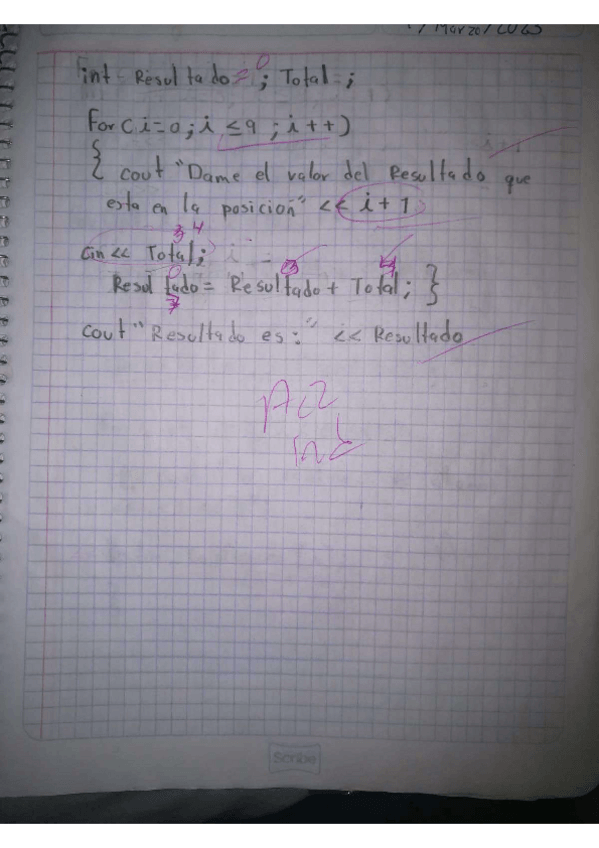 /Marzo/2023
int Resultado= 0; Total ;
For( i=0; i ≤9 ; i++)
{ cout "Dame el valor del Resultado que
esta en la posicion" << i+1
3 4
cin << Total;
0 3 4
Resultado= Resultado+ Total; }
7
cout "Resultado es:" << Resultado
Scribe